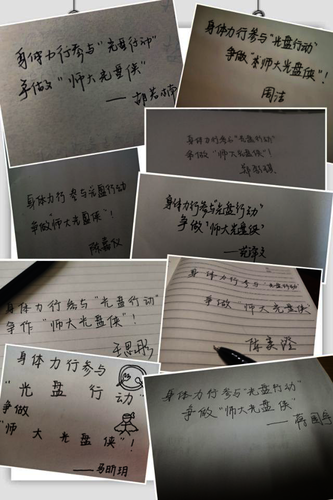 身体力行参与“光盘行动”
争做“师大光盘侠”
身体力行参与“光盘行动”
争做“师大光盘侠”！
周洁
身体力行参与“光盘行动”
争做“师大光盘侠”！
身体力行参与光盘行动
争做“师大光盘侠”！
身体力行参与“光盘行动”
争做“师大光盘侠”！
身体力行参与“光盘行动”
争作“师大光盘侠”！
王思彤
身体力行参与“光盘行动”
争做“师大光盘侠”
身体力行参与
“光盘行动”
争做
“师大光盘侠”！
——马昕玥
身体力行参与“光盘行动”
争做“师大光盘侠”